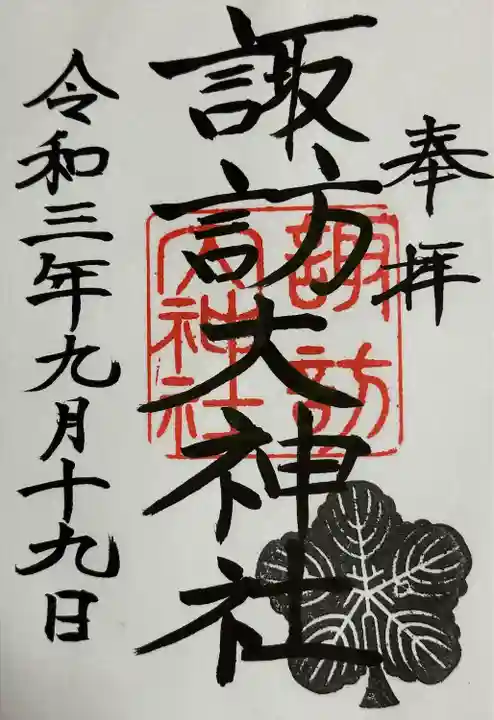 奉拝
諏訪大神社
諏訪
大神社
令和三年九月十九日